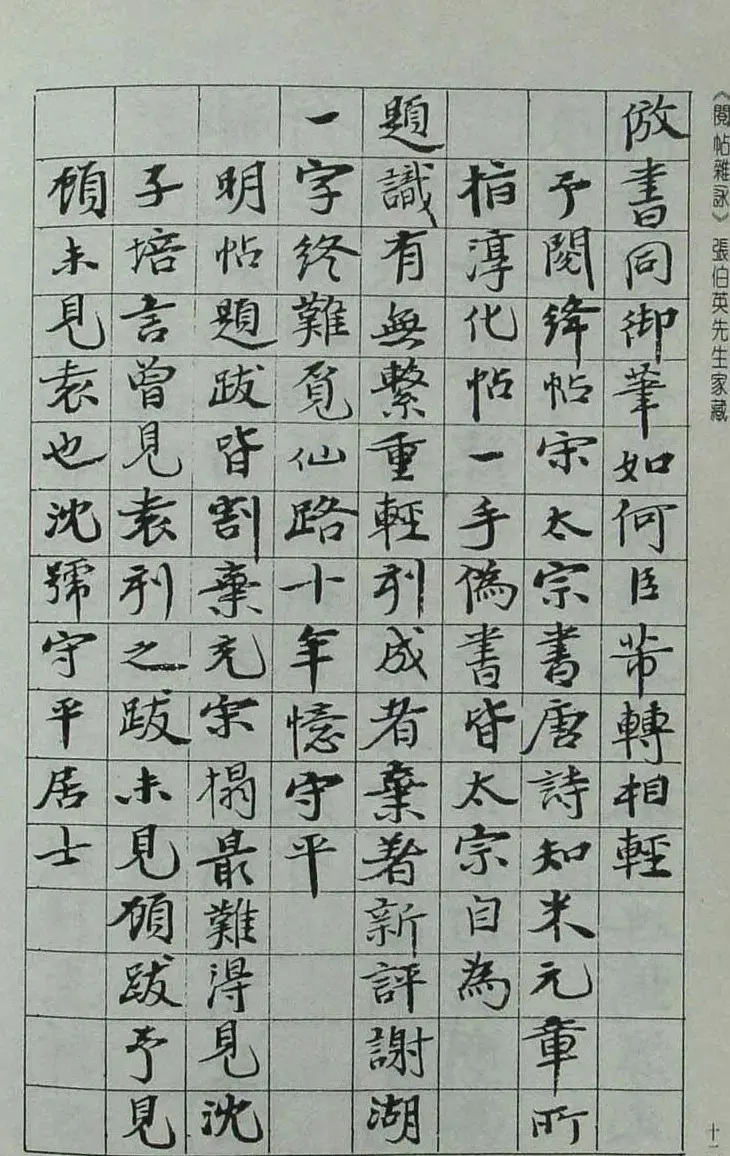 《閱帖雜詠》張伯英先生家藏
倣書同御筆如何臣芾轉相輕
予閱絳帖宋太宗書唐詩知米元章所
指淳化帖一手偽書皆太宗自為
題識有無繫重輕刊成者棄著新評謝湖
一字終難覓仙路十年憶守平
明帖題跋皆割棄充宋搨最難得見沈
子培言曾見袁刊之跋未見顧跋予見
顧未見袁也沈號守平居士
十一